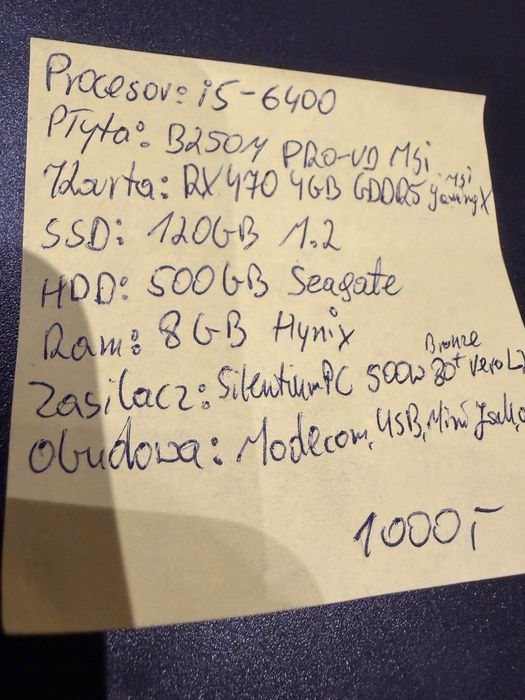 Procesor: i5-6400
Płyta: B250M PRO-VD Msi
Karta: RX470 4GB GDDR5 Msi gamingX
SSD: 120GB M.2
HDD: 500GB Seagate
Ram: 8GB Hynix
Zasilacz: SilentiumPC 500W 80+ Bronze Vero
Obudowa: Modecom, USB, Mini Jack,
1000,-